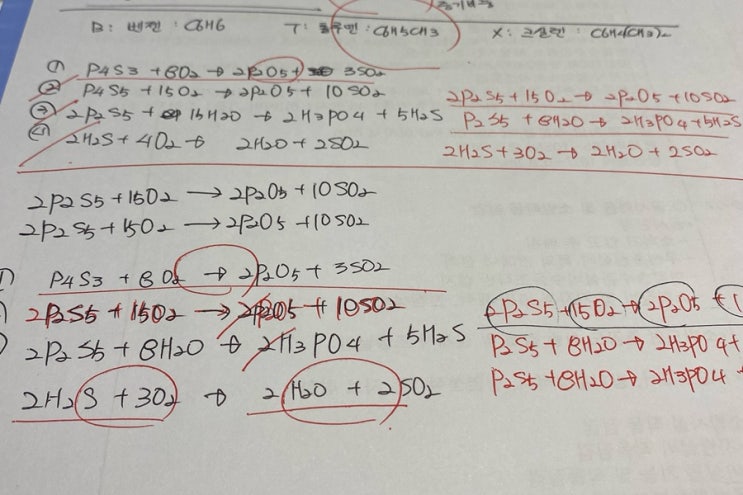 B: 벤젠 : C6H6 T: 톨루엔 : C6H5CH3 X: 크실렌 : C6H4(CH3)2
① P4S3 + 8O2 → 2P2O5 + 3SO2
② P4S5 + 15O2 → 2P2O5 + 10SO2
③ 2P2S5 + 16H2O → 2H3PO4 + 5H2S
④ 2H2S + 4O2 → 2H2O + 2SO2
2P2S5 + 15O2 → 2P2O5 + 10SO2
P2S5 + 8H2O → 2H3PO4 + 5H2S
2H2S + 3O2 → 2H2O + 2SO2
2P2S5 + 15O2 → 2P2O5 + 10SO2
2P2S5 + 15O2 → 2P2O5 + 10SO2
P4S3 + 8O2 → 2P2O5 + 3SO2
2P2S5 + 15O2 → 2P2O5 + 10SO2
2P2S5 + 8H2O → 2H3PO4 + 5H2S
2H2S + 3O2 → 2H2O + 2SO2
2P2S5 + 15O2 → 2P2O5 + 1
P2S5 + 8H2O → 2H3PO4 +
P2S5 + 8H2O → 2H3PO4 +